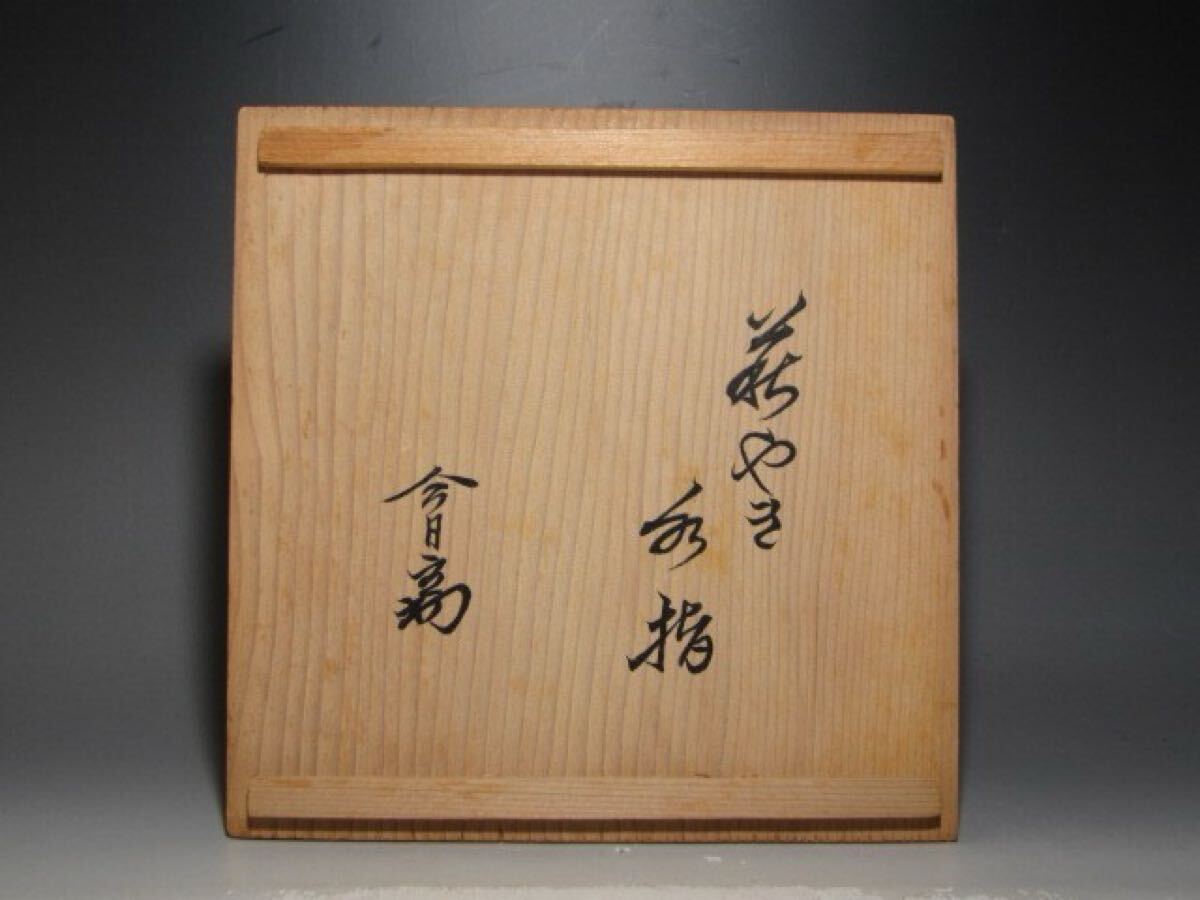 萩やき
水指
今日庵